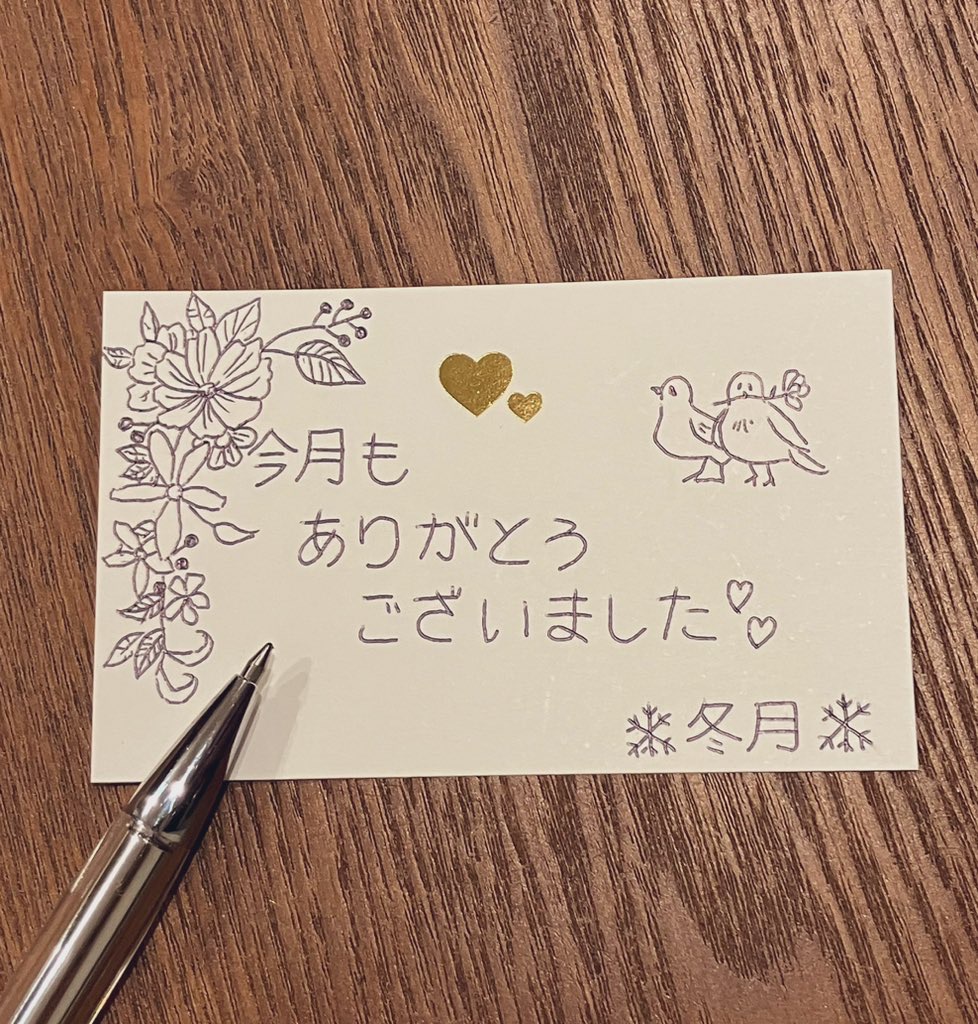 今月も
ありがとう
ございました♡♡
❄冬月❄